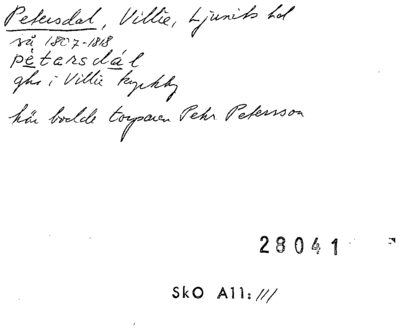 Petersdal, Villie, Ljunits hd
så 1807-1818
pètarsdál
ghs i Villie kyrkby
här bodde torparen Pehr Petersson
28041
SkO All: ///